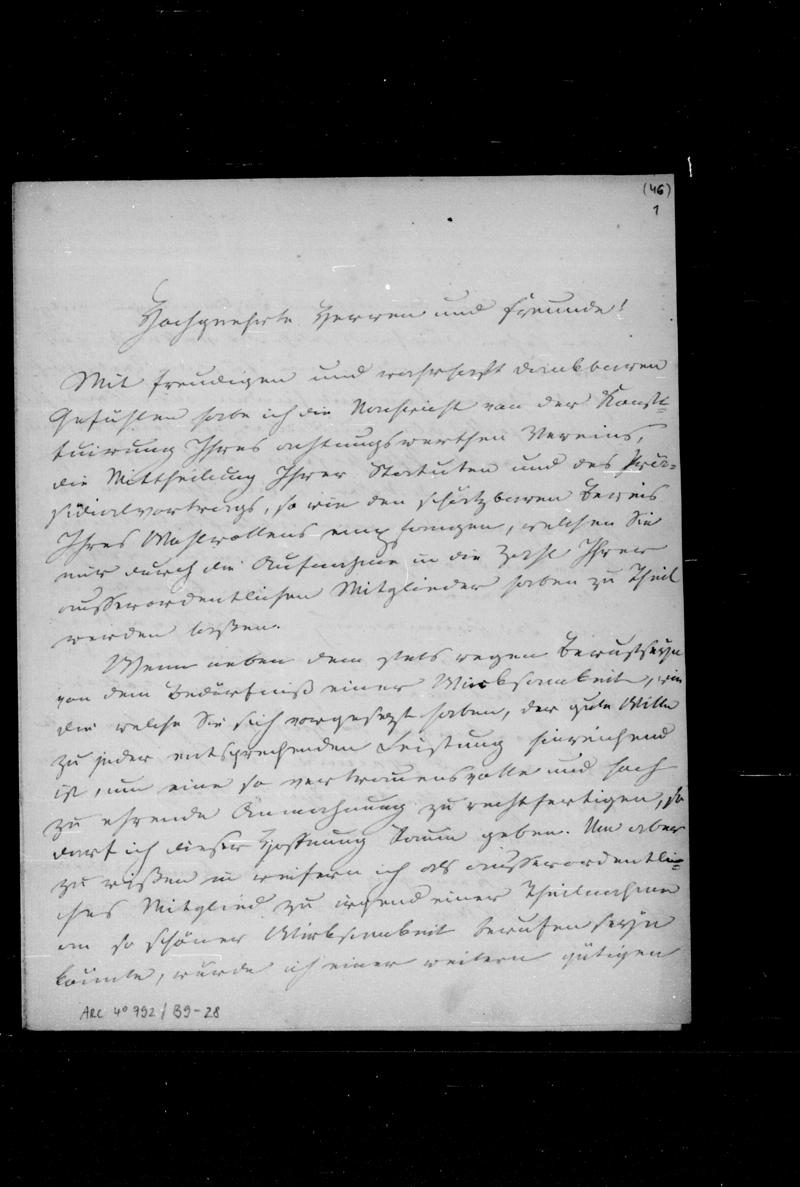 (46)
1
Hochgeehrte Herren und Freunde!
Mit freudigen und wahrhaft dankbaren
Gefühlen habe ich die Nachricht von der Konsti=
tuirung Ihres achtungswerthen Vereins,
die Mittheilung Ihrer Statuten und des Prä=
sidialvortrags, so wie den schätzbaren Beweis
Ihres Wohlwollens empfangen, welchen Sie
mir durch die Aufnahme in die Zahl Ihrer
ausserordentlichen Mitglieder haben zu Theil
werden lassen.
Wenn neben dem stets regen Bewustseyn
von dem Bedürfniß einer Wirksamkeit, wie
die welche Sie sich vorgesetzt haben, der gute Wille
zu jeder entsprechenden Leistung hinreichend
ist, um eine so vertrauensvolle und hoch
zu ehrende Anmahnung zu rechtfertigen, so
darf ich dieser Hoffnung Raum geben. Um aber
zu wißen in wiefern ich als ausserordentli=
ches Mitglied zu irgend einer Theilnahme
an so schöner Wirksamkeit berufen seyn
könnte, würde ich einer weitern gütigen
ARC 4° 792 / B9-28